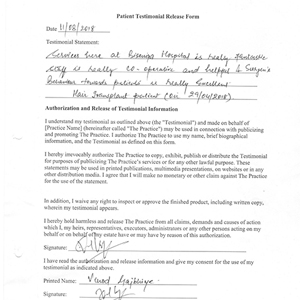 Patient Testimonial Release Form
Date 11/08/2018
Testimonial Statement:
Services here at Hospital is really fantastic
staff is really co-operative and helpful & Surgeon's
Behaviour towards patients is really Excellent
Hair Transplant patient (On 29/04/2018)
Authorization and Release of Testimonial Information
I understand my testimonial as outlined above (the "Testimonial") and made on behalf of
[Practice Name] (hereinafter called "The Practice") may be used in connection with publicizing
and promoting The Practice. I authorize The Practice to use my name, brief biographical
information, and the Testimonial as defined on this form.
I hereby irrevocably authorize The Practice to copy, exhibit, publish or distribute the Testimonial
for purposes of publicizing The Practice's services or for any other lawful purpose. These
statements may be used in printed publications, multimedia presentations, on websites or in any
other distribution media. I agree that I will make no monetary or other claim against The Practice
for the use of the statement.
In addition, I waive any right to inspect or approve the finished product, including written copy,
wherein my testimonial appears.
I hereby hold harmless and release The Practice from all claims, demands and causes of action
which I, my heirs, representatives, executors, administrators or any other persons acting on
my behalf or on behalf of my estate have or may have by reason of this authorization.
Signature:
I have read the authorization and release information and give my consent for the use of my
testimonial as indicated above.
Printed Name:
Signature: